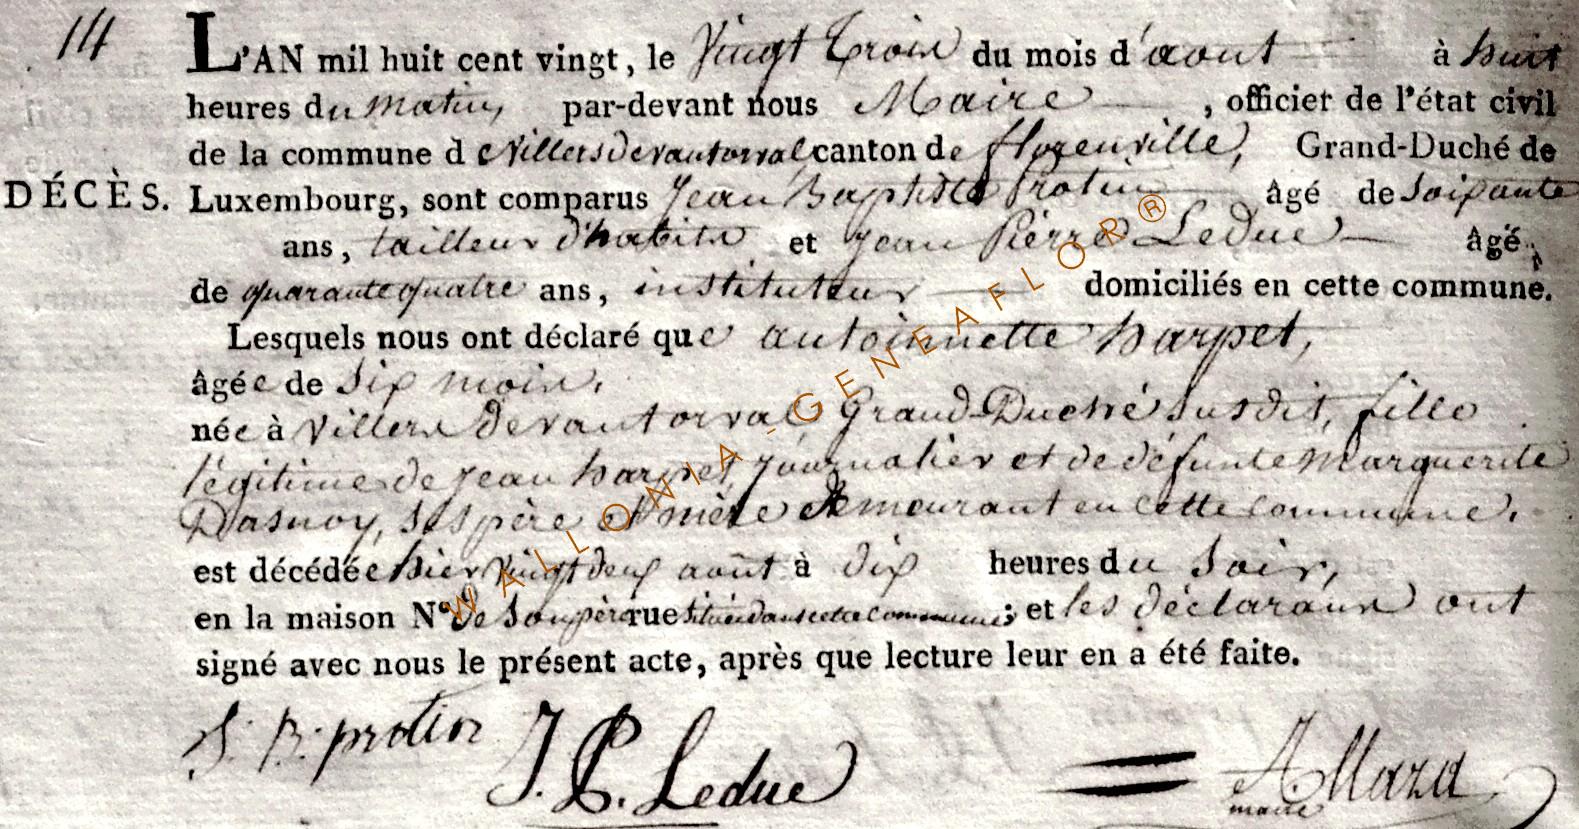 14
L'AN mil huit cent vingt, le Vingt Trois du mois d'aout à huit
heures du matin, par-devant nous Maire, officier de l'état civil
de la commune d e Villersdevantorval canton de florenville, Grand-Duché de
DÉCÈS. Luxembourg, sont comparus Jean Baptiste Protin âgé de Soixante
ans, tailleur d'habits et jean Pierre Leduc âgé
de quarante quatre ans, instituteur domiciliés en cette commune.
Lesquels nous ont déclaré que antoinnette harpet,
âgée de Six mois,
née à Villers devant orval Grand-Duché Susdit, fille
légitime de jean harpet, journalier et de défunte Marguerite
Dasnoy, Ses père et mère demeurant en cette commune.
est décédée hier Vingt deux août à dix heures du Soir,
en la maison N° de Son père rue Située dans cette commune; et les déclarans ont
signé avec nous le présent acte, après que lecture leur en a été faite.
J. B. protin J. P. Leduc A Maza
maire
WALLONIA-GENEAFLOR®